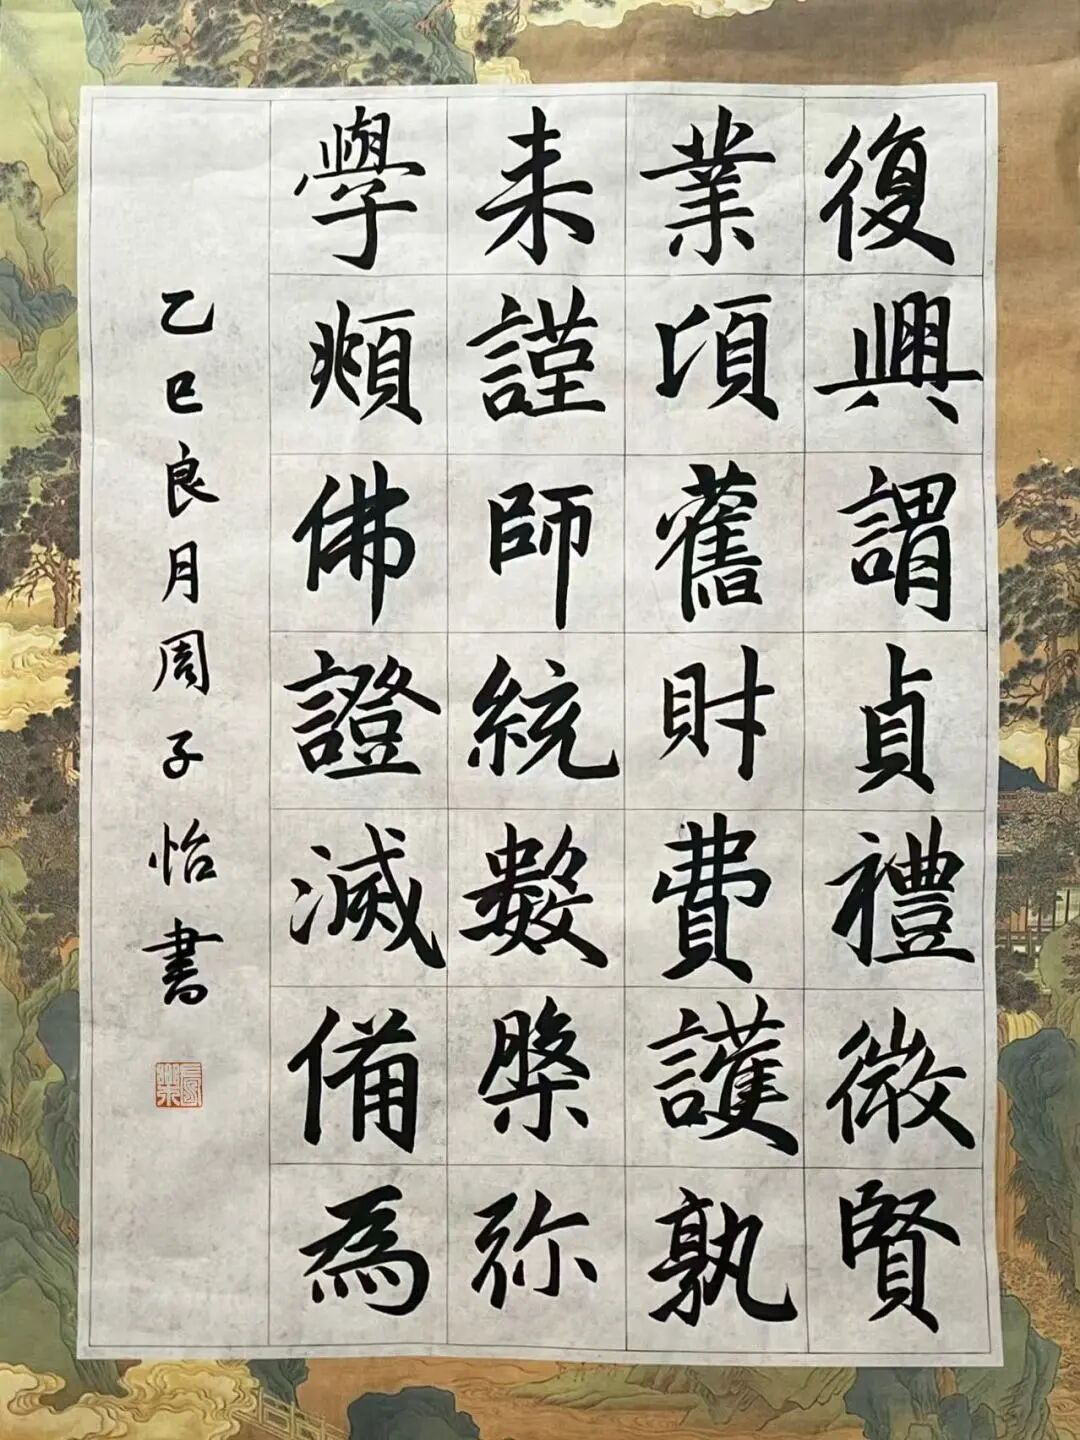 復興謂貞禮微賢
業項舊財費護孰
未謹師統數槃弥
學頫佛證滅備為
乙巳良月周子怡書